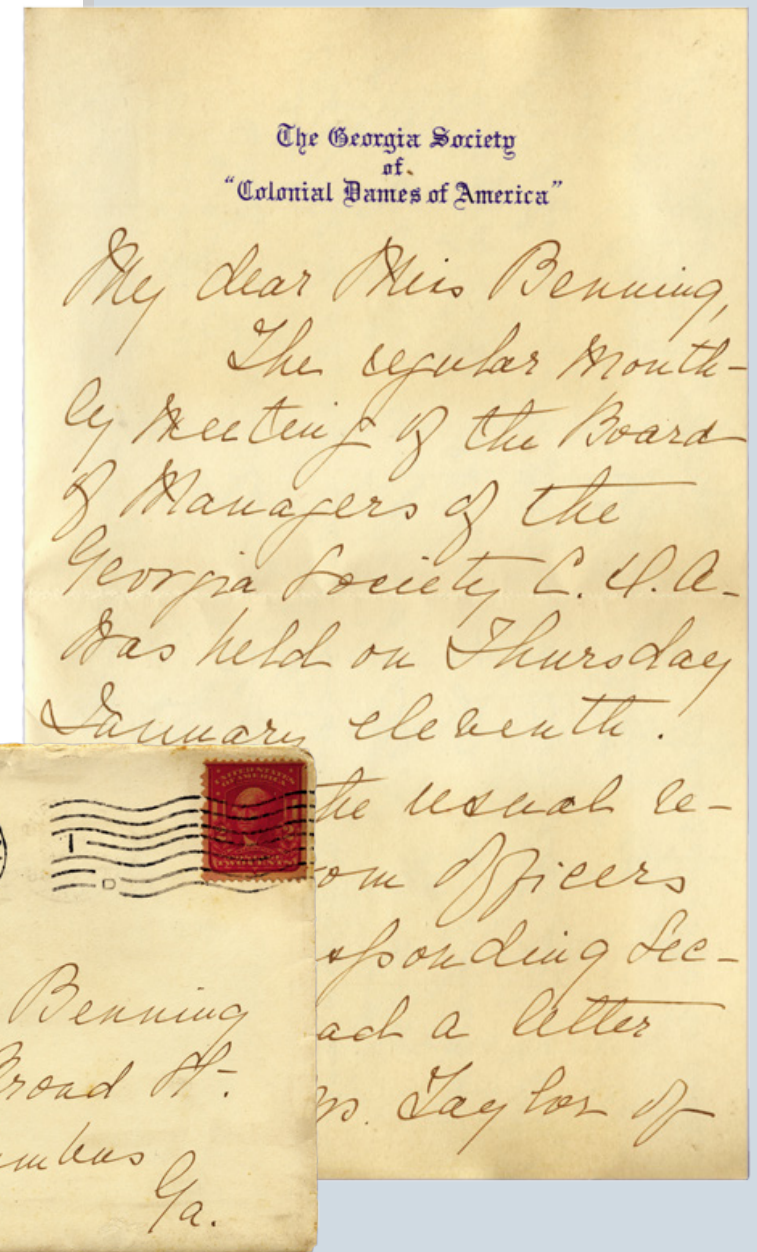 The Georgia Society
of
"Colonial Dames of America"
My dear Miss Benning,
The regular Month-
ly Meeting of the Board
of Managers of the
Georgia Society C. D. A-
was held on Thursday
January eleventh.
he usual re-
om Officers
sponding Sec-
ad a letter
Taylor of
UNITED STATES
OF AMERICA
Benning
road St.
mbus
Ga.